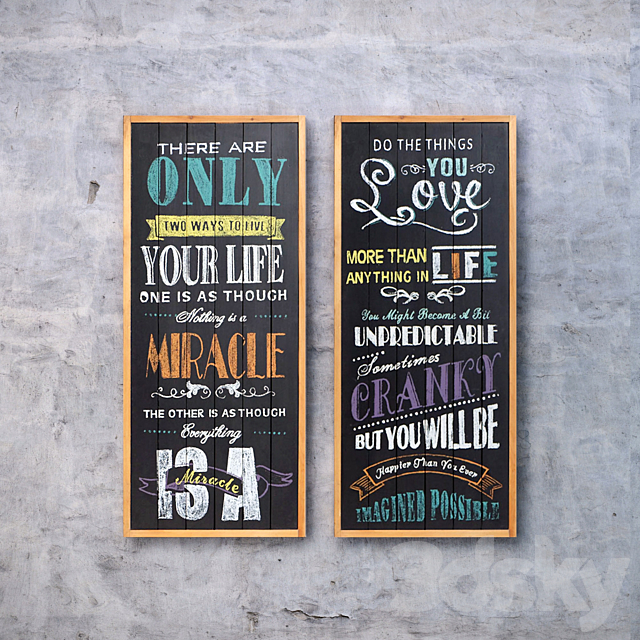 THERE ARE
ONLY
TWO WAYS TO LIVE
YOUR LIFE
ONE IS AS THOUGH
Nothing is a
MIRACLE
THE OTHER IS AS THOUGH
Everything
IS A
Miracle
DO THE THINGS
YOU
Love
MORE THAN
ANYTHING IN
LIFE
You Might Become A Bit
UNPREDICTABLE
Sometimes
CRANKY
BUT YOU WILL BE
Happier Than You Ever
IMAGINED POSSIBLE
3dsky